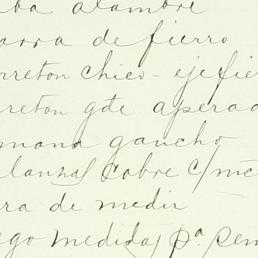 ba alambre
arra de fierro
rreton chico - eje fie
reton gde aperad
mana gancho
lanzas cobre c/
ra de medir
ego medidas pa. sem